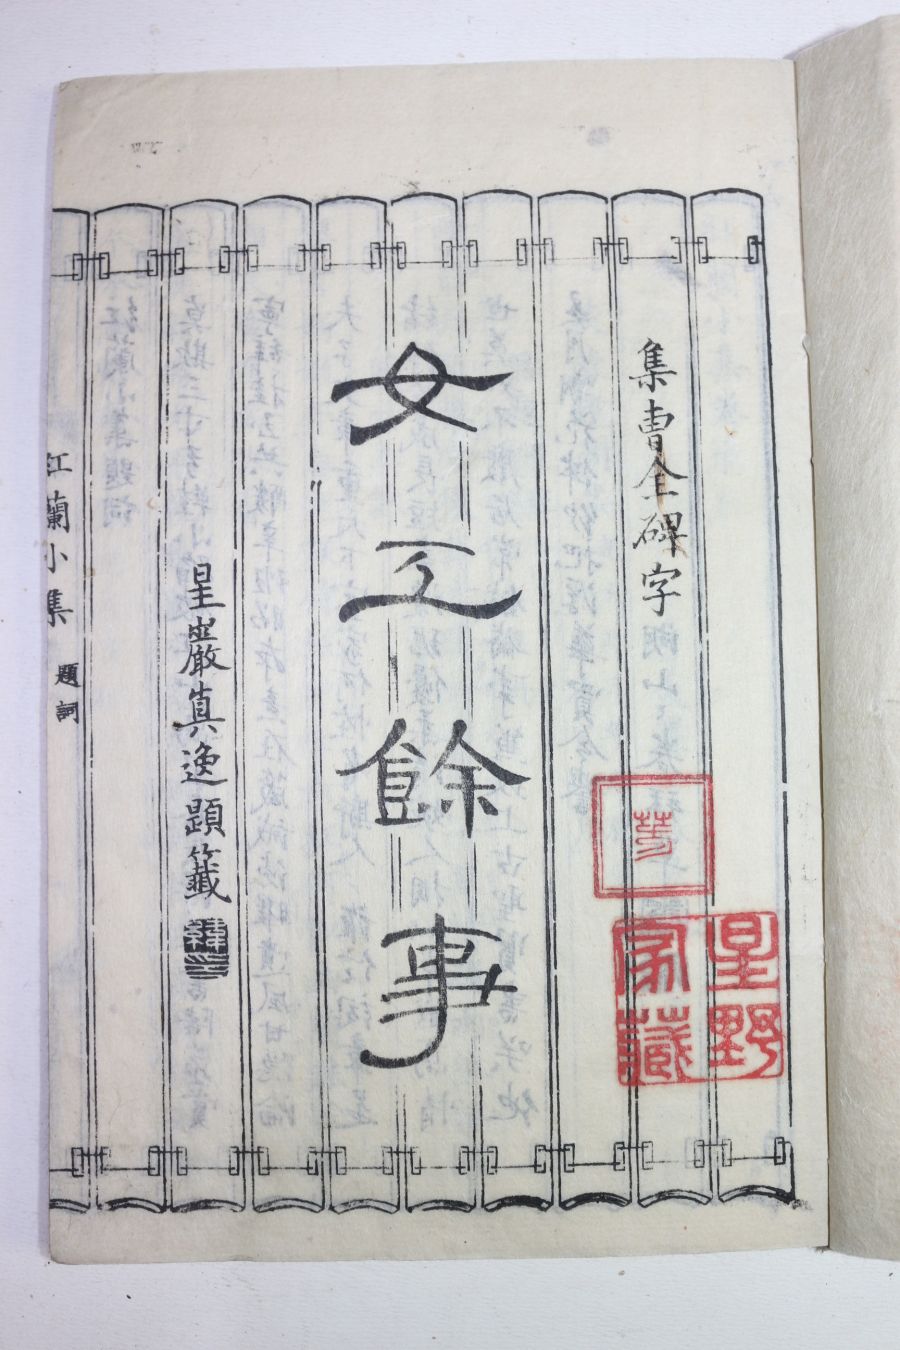 集曹全碑字
女工餘事
星巖真逸題籤
星野
家藏
紅蘭小集 題詞